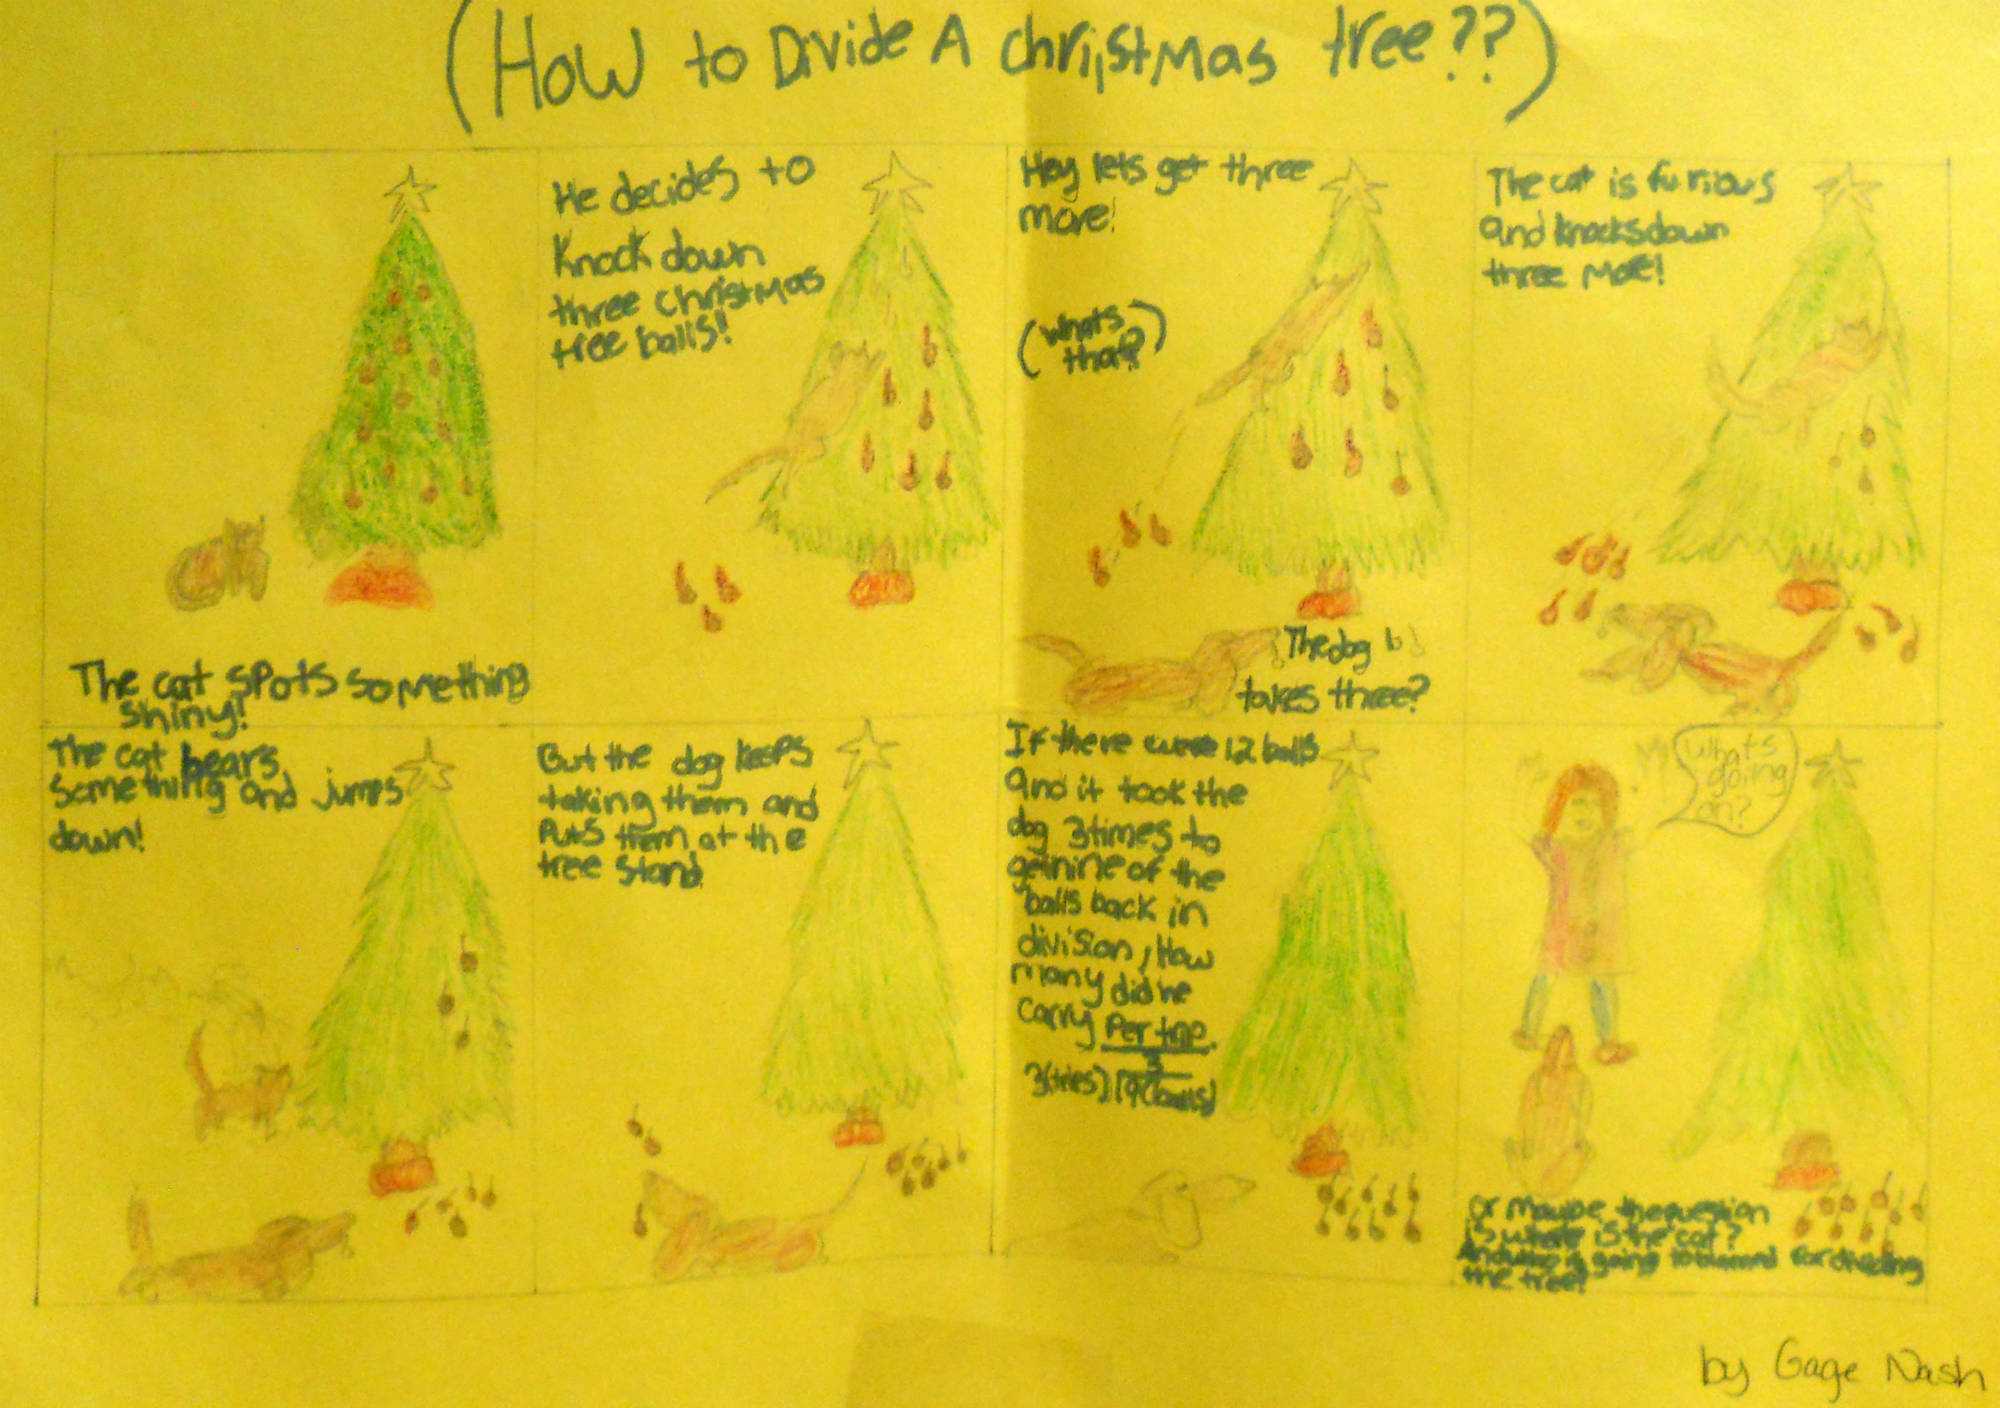 (How to Divide A christmas tree??)
The cat spots something
shiny!
He decides to
knock down
three christmas
tree balls!
Hey lets get three
more!
(whats
that?)
The dog
takes three?
The cat is furious
and knocks down
three more!
The cat hears
something and jumps
down!
But the dog keeps
taking them and
puts them at the
tree stand.
If there were 12 balls
and it took the
dog 3 times to
get nine of the
balls back in
division, How
many did he
carry Per trip.
3
3(tries) 9(balls)
whats
going
on?
or maybe the question
is where is the cat?
And who is going to blamed for dividing
the tree?
by Gage Nash